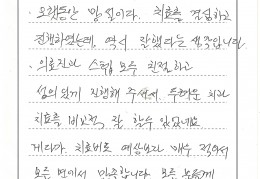 · 오랫동안 망설이다. 치료를 결심하고
진행하였는데, 역시 잘했다는 생각입니다
· 의료진과 스텝 모두 친절하고
성의있게 진행해 주셔서, 두려운 치과
치료를 비교적 잘 할수 있었네요
게다가 치료비도 예상보다 매우 적어서
모든 면에서 만족합니다. 모든 분들께